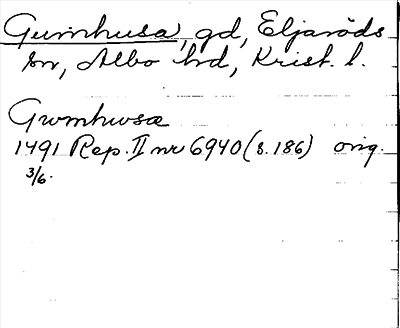 Gumhusa, gd, Eljaröds
sn, Albo hd, Krist. l.
Gwmhwsæ
1491 Rep. II nr 6940 (s. 186) orig.
3/6.